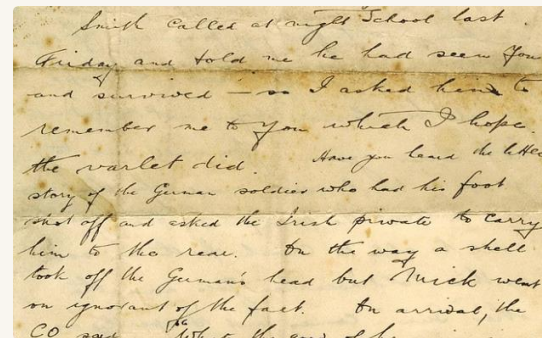 Smith called at night School last
Friday and told me he had seen You
and survived — so I asked him to
remember me to You which I hope
the varlet did. Have you heard the little
story of the German soldier who had his foot
shot off and asked the Irish private to carry
him to the rear. On the way a shell
took off the German's head but Mick went
on ignorant of the fact. On arrival, the
CO said "What the